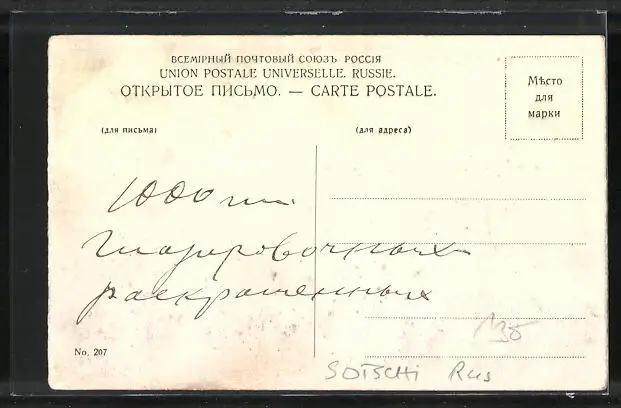 ВСЕМІРНЫЙ ПОЧТОВЫЙ СОЮЗЪ РОССІЯ
UNION POSTALE UNIVERSELLE. RUSSIE.
ОТКРЫТОЕ ПИСЬМО. — CARTE POSTALE.
Мѣсто
для
марки
(для письма)
(для адреса)
1000 шт
глазировочныхъ
раскрашенныхъ
No. 207
SOTSCHI Rus